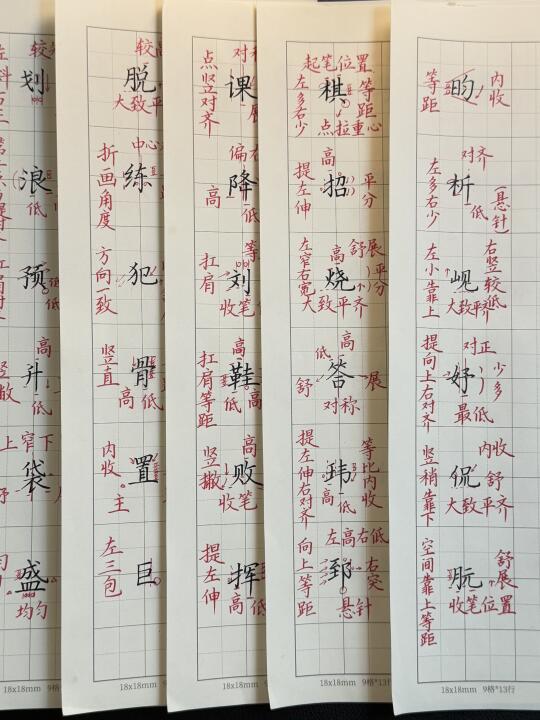 较
划
浪
低
预
低
高
升
低
上窄下
袋
盛
均匀
18x18mm 9格*13行
较高
脱
大致平
中心
折画角度
练
方向一致
犯
竖直
骨
高低
内收
置
主
左三包
巨
18x18mm 9格*13行
对称
点竖对齐
课
展
偏右
高
降
低
等
扛肩
刘
收笔
高
扛肩等距
鞋
高低
高
竖撇
败
收笔
提左伸
挥
高低
18x18mm 9格*13行
起笔位置
左多右少
棋
等距
点拉重心
高
提左伸
招
平分
低
高舒展
左窄右宽
烧
平分
大致平齐
高
低
舒
答
展
对称
提左伸右对齐
玮
等比内收
高低
左高右低
向上等距
郅
右突
悬针
18x18mm 9格*13行
等距
昀
内收
对齐
左多右少
析
低
悬针
左小靠上
岘
右竖较低
大致平齐
对正
提向上右对齐
妤
少多
最低
内收
竖稍靠下
侃
舒
大致平齐
空间靠上等距
朊
舒展
收笔位置
18x18mm 9格*13行